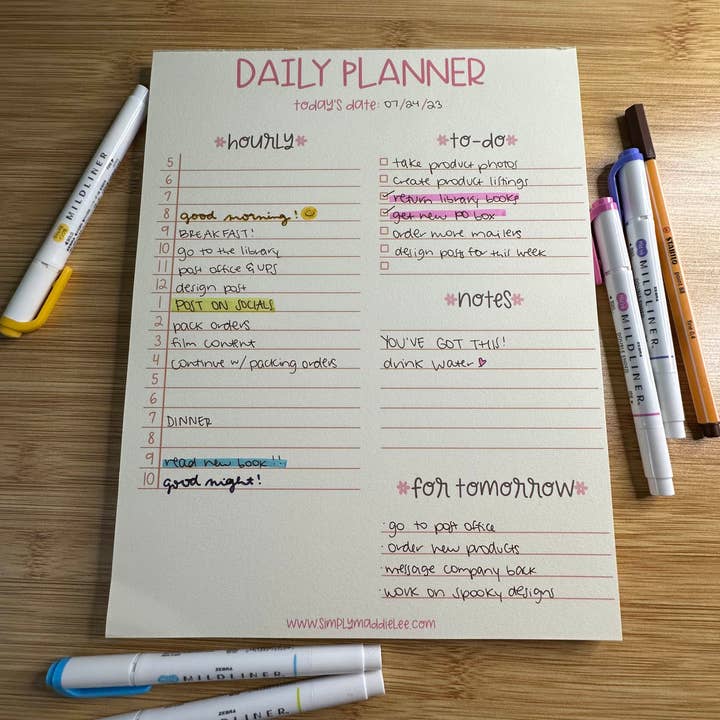 DAILY PLANNER
today's date: 07/24/23
hourly
5
6
7
8 good morning!
9 BREAKFAST!
10 go to the library
11 post office & UPS
12 design post
1 POST ON SOCIALS
2 pack orders
3 film content
4 continue w/ packing orders
5
6
7 DINNER
8
9 read new book!!
10 good night!
to-do
take product photos
create product listings
return library books
get new PO box
order more mailers
design posts for this week
notes
YOU'VE GOT THIS!
drink water
for tomorrow
· go to post office
· order new products
· message company back
· work on spooky designs
WWW.SIMPLYMADDIELEE.COM
MILDLINER
ZEBRA
MILDLINER
ZEBRA
MILDLINER
STABILO
ZEBRA
MILDLINER
ZEBRA
MILDLINER